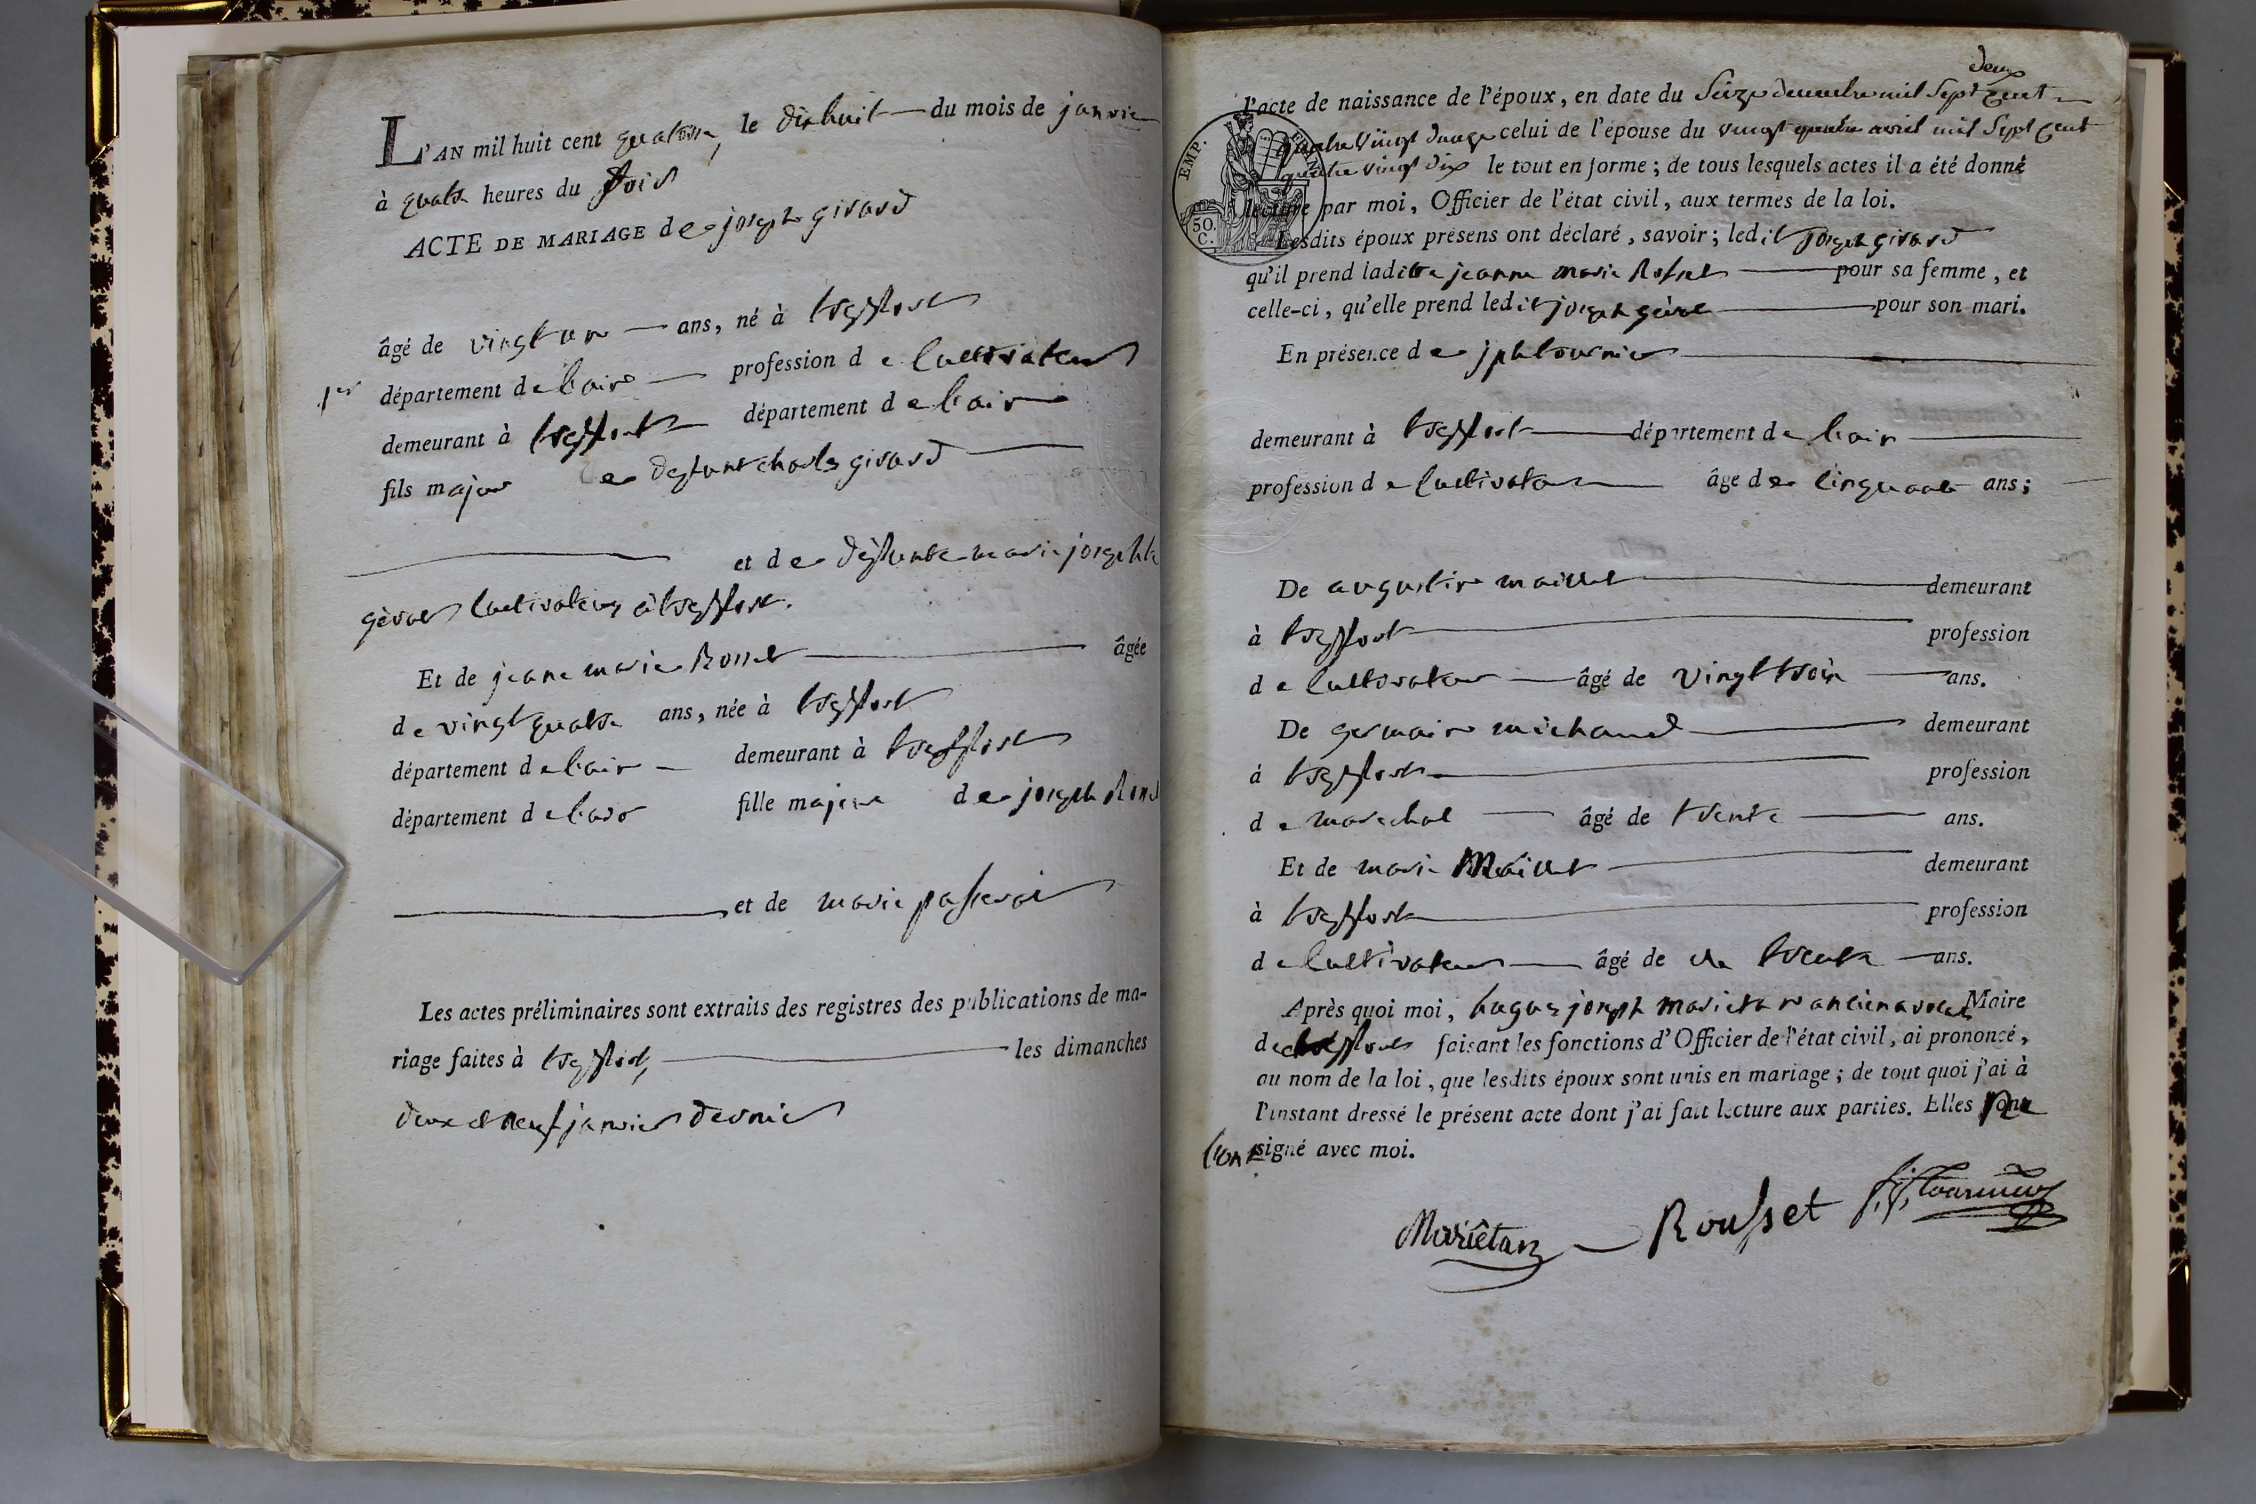 L'AN mil huit cent quatorze, le dixhuit du mois de janvier
à quatre heures du soir
ACTE DE MARIAGE de joseph girard
âgé de vingt un ans, né à treffort
1er département de l'ain profession de Cultivateur
demeurant à treffort département de l'ain
fils majeur de deffunt charles girard
et de deffunte marie josephte
gèvre Cultivateurs à treffort.
Et de jeane marie Rosset âgée
de vingt quatre ans, née à treffort
département de l'ain demeurant à treffort
département de l'ain fille majeure de joseph
et de marie passerai
Les actes préliminaires sont extraits des registres des publications de ma-
riage faites à treffort, les dimanches
deux et neuf janvier dernier
deux
l'acte de naissance de l'époux, en date du Seize decembre mil sept cent
quatre vingt douze celui de l'épouse du vingt quatre avril mil sept cent
quatre vingt dix le tout en forme ; de tous lesquels actes il a été donné
lecture par moi, Officier de l'état civil, aux termes de la loi.
EMP. 50. C.
Lesdits époux présens ont déclaré, savoir ; ledit joseph girard
qu'il prend ladite jeanne marie Rosset pour sa femme, et
celle-ci, qu'elle prend ledit joseph pour son mari.
En présence de jph tournier
demeurant à treffort département de l'ain
profession de Cultivateur âgé de cinquante ans ;
De augustin maillet demeurant
à treffort profession
de Cultivateur âgé de vingt trois ans.
De germain michaud demeurant
à treffort profession
de marechal âgé de trente ans.
Et de marie Maillet demeurant
à treffort profession
de Cultivateur âgé de de trente ans.
Après quoi moi, hugues joseph marietan Maire
de treffort faisant les fonctions d'Officier de l'état civil, ai prononcé,
au nom de la loi, que lesdits époux sont unis en mariage ; de tout quoi j'ai à
l'instant dressé le présent acte dont j'ai fait lecture aux parties. Elles ne
l'ont signé avec moi.
Mariêtan Rousset j.j. tournier